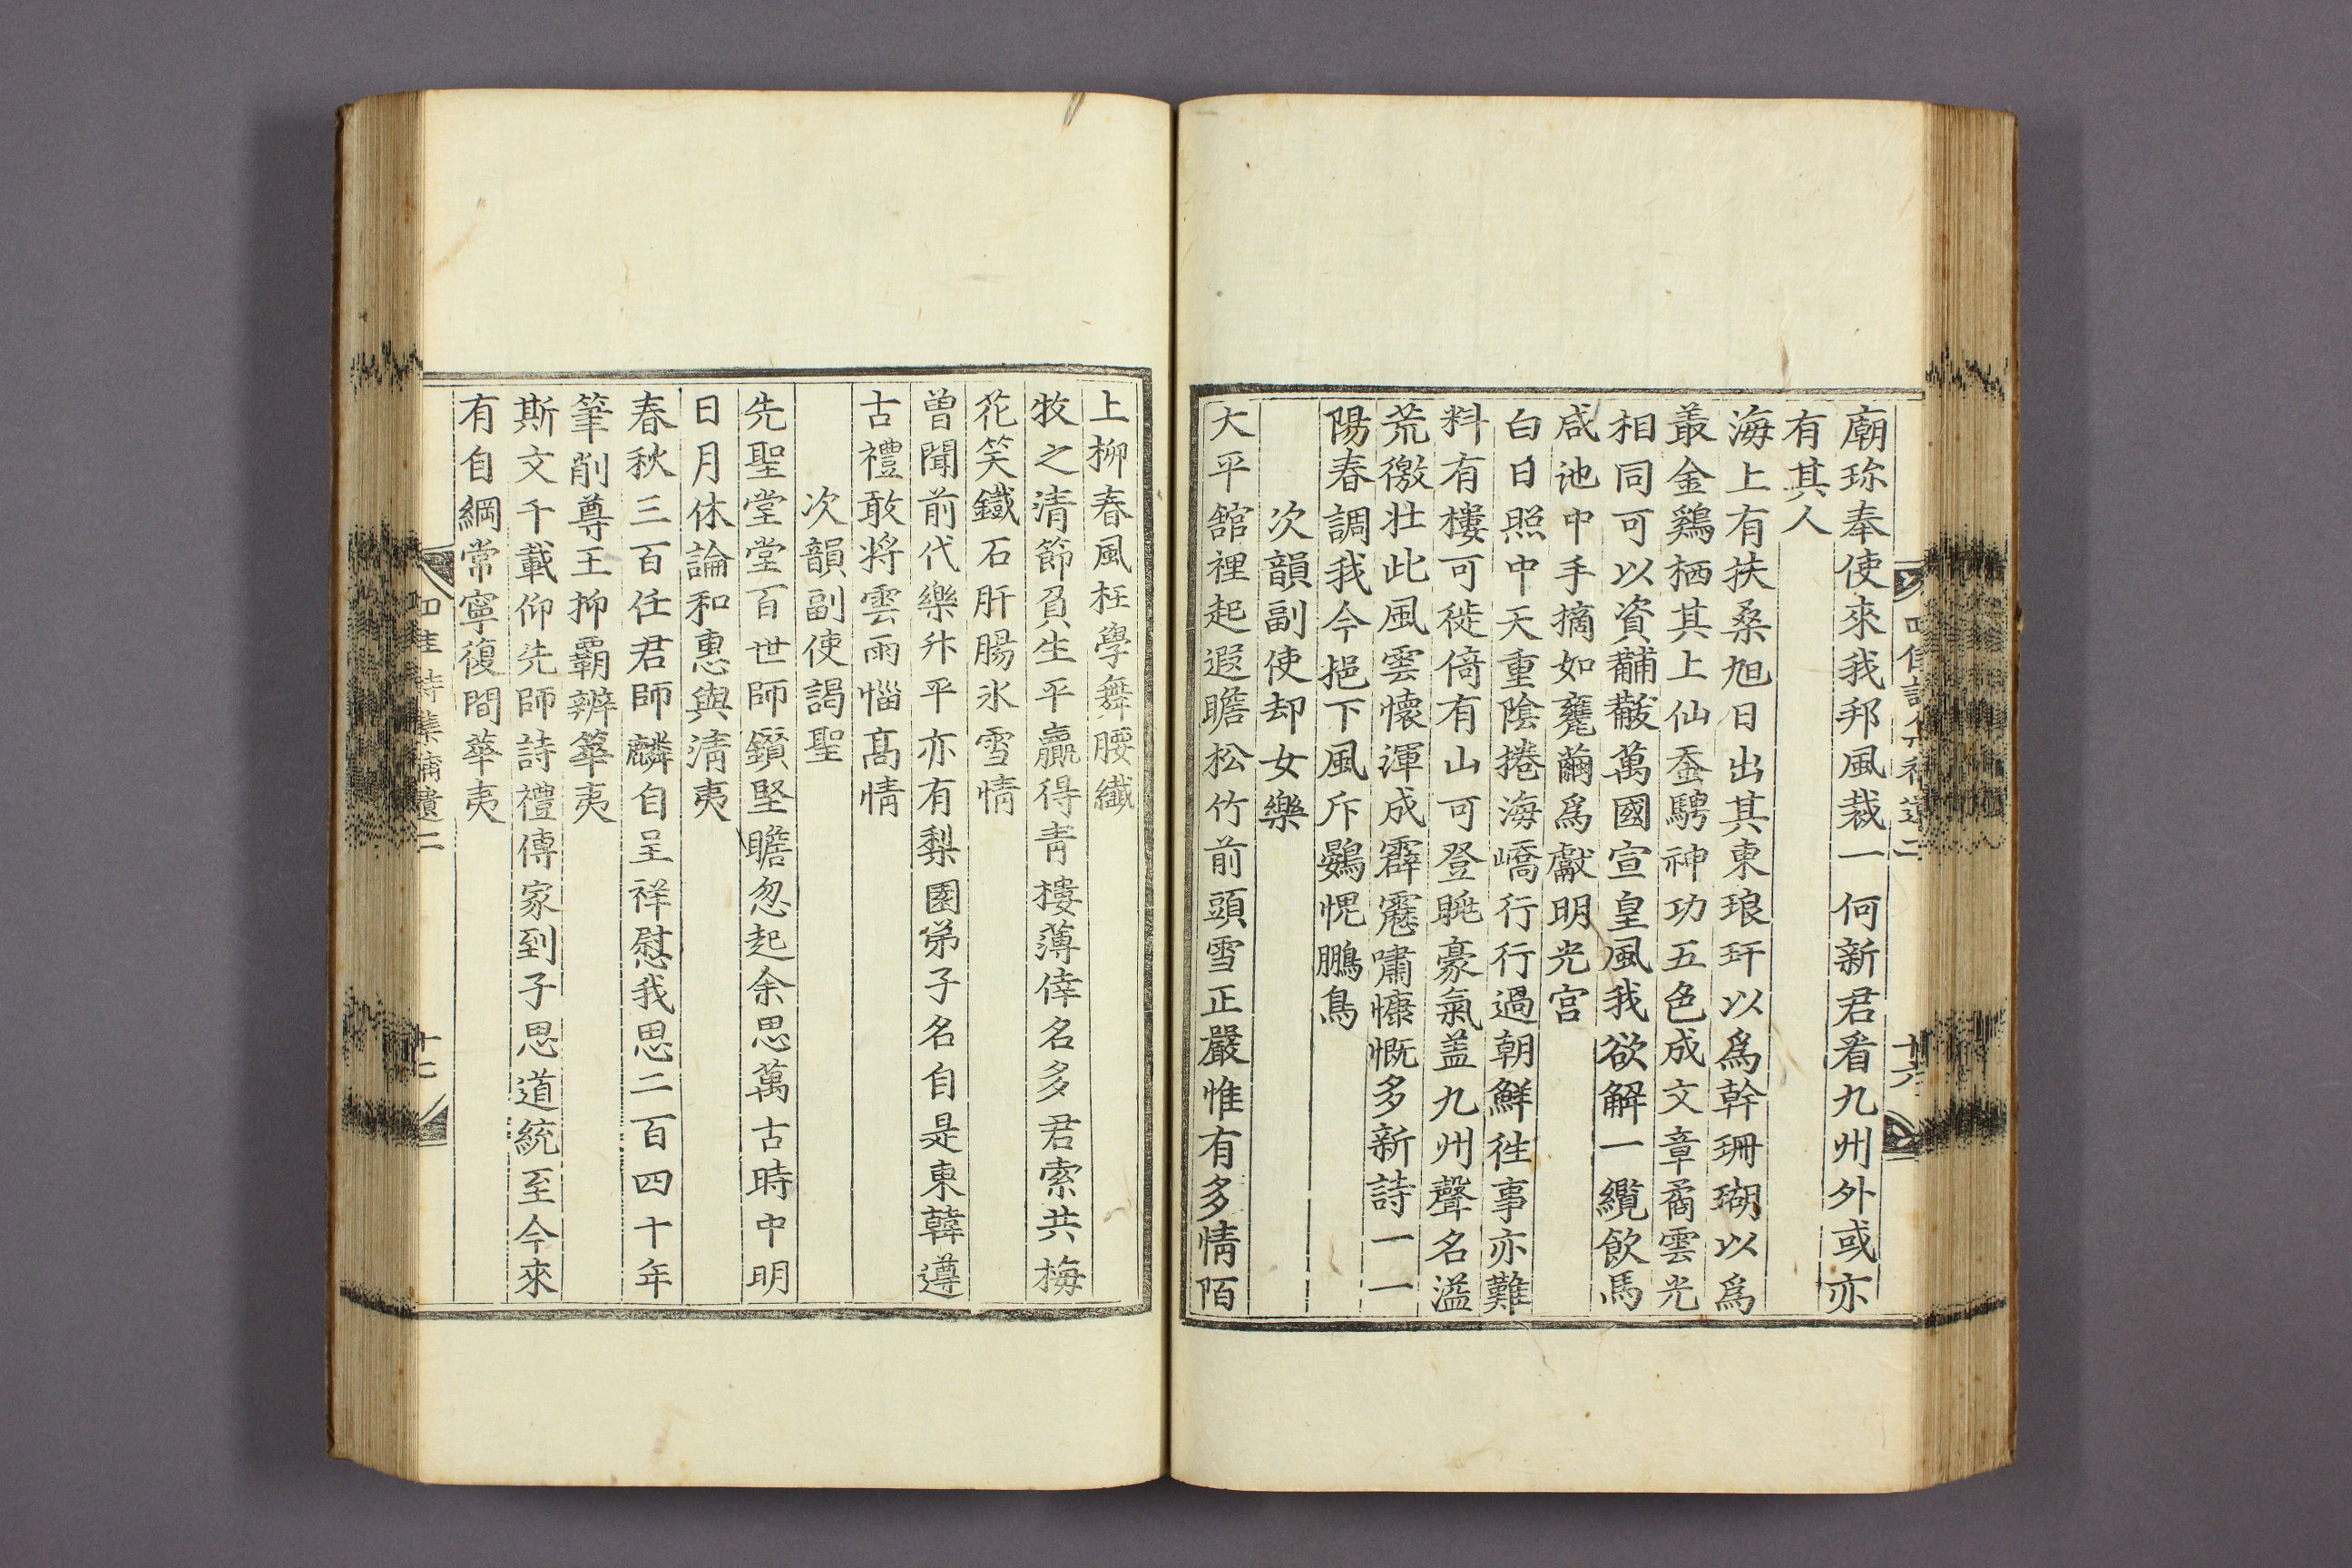 廟珎奉使來我邦風裁一何新君看九州外或亦
有其人
海上有扶桑旭日出其東琅玕以爲幹珊瑚以爲
叢金鷄栖其上仙蚕騁神功五色成文章矞雲光
相同可以資黼黻萬國宣皇風我欲解一纜飲馬
咸池中手摘如甕繭爲獻明光宮
白日照中天重陰捲海嶠行行過朝鮮徃事亦難
料有樓可徙倚有山可登眺豪氣盖九州聲名溢
荒徼壮此風雲懷渾成霹靂嘯慷慨多新詩一一
陽春調我今挹下風斥鷃愧鵬鳥
次韻副使却女樂
大平舘裡起遐瞻松竹前頭雪正嚴惟有多情陌
四佳詩集補遺二
十六
上柳春風枉學舞腰纖
牧之清節負生平贏得靑樓薄倖名多君索共梅
花笑鐵石肝膓氷雪情
曾聞前代樂升平亦有梨園弟子名自是東韓遵
古禮敢将雲雨惱髙情
次韻副使謁聖
先聖堂堂百世師鑽堅瞻忽起余思萬古時中明
日月休論和惠與淸夷
春秋三百任君師麟自呈祥慰我思二百四十年
筆削尊王抑覇辨華夷
斯文千載仰先師詩禮傳家到子思道統至今來
有自綱常寧復間華夷
四佳詩集補遺二
十七